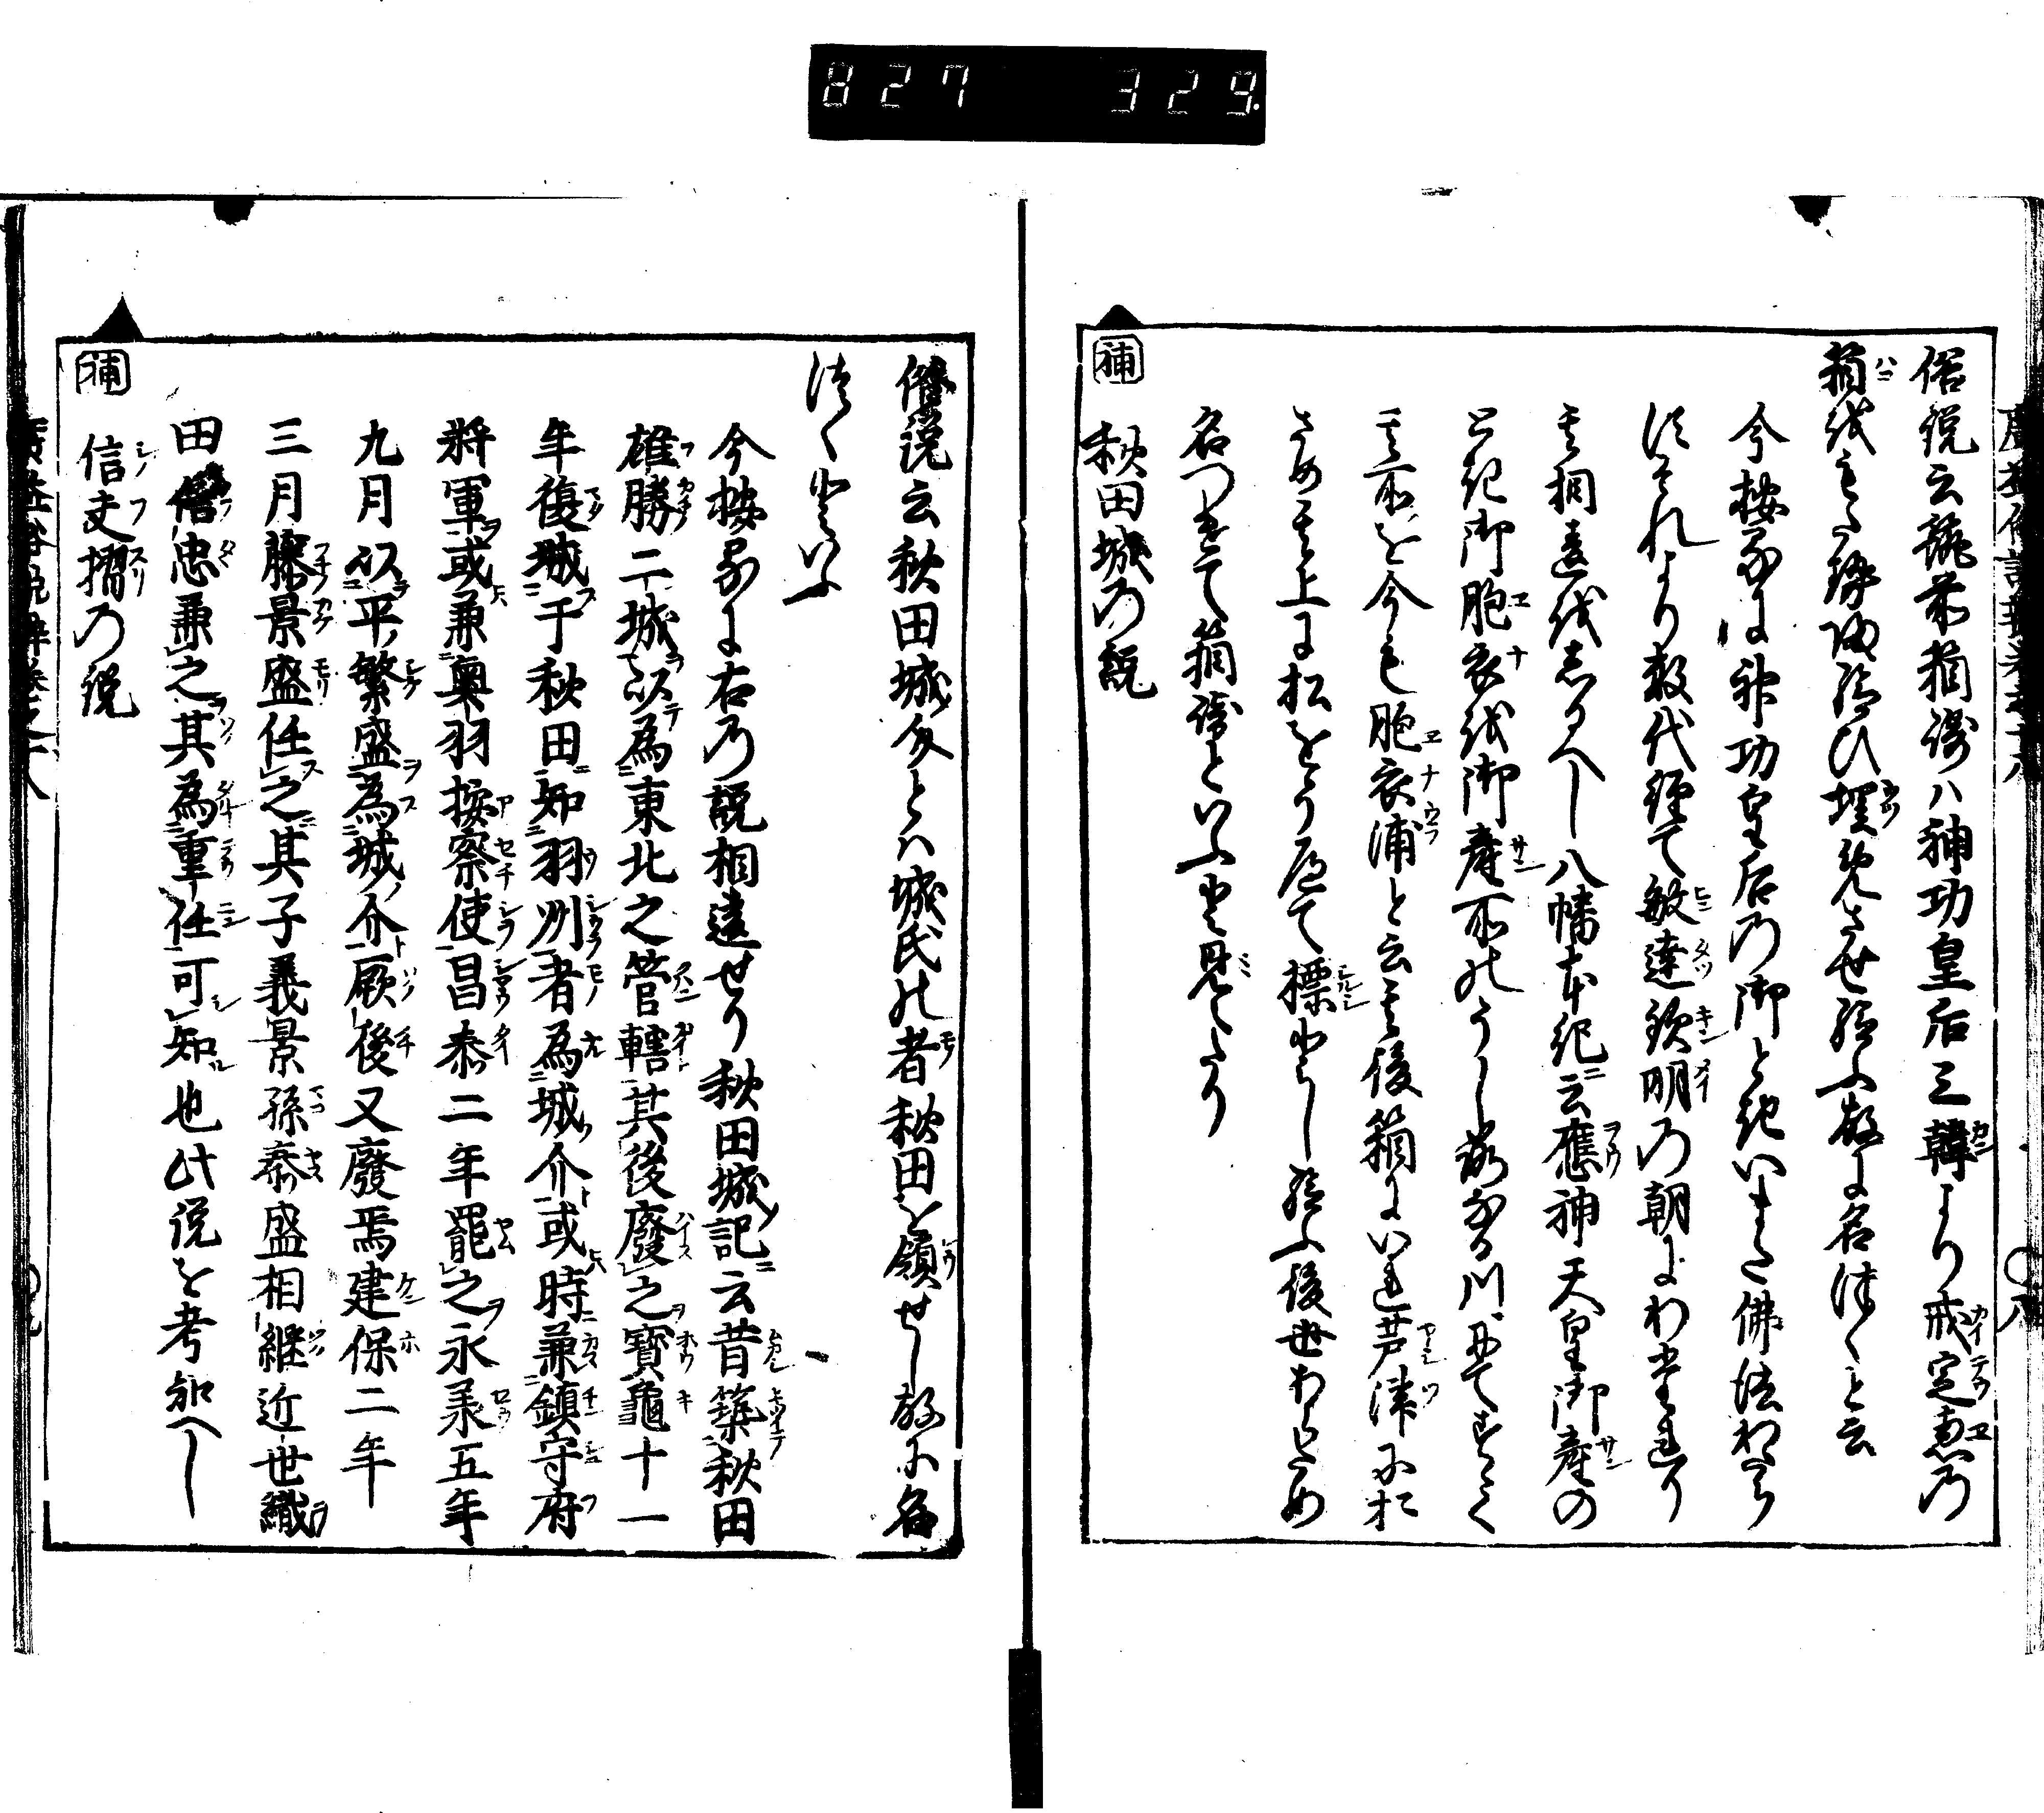 827 329
俗説云筑前箱崎ハ神功皇后三韓より戒定恵の
箱をもち帰給ひ埋せ給ふ故に名付くと云
今按るに神功皇后の御ときいまた佛法わたら
すそれより数代経て敏達欽明の朝にわたれり
其相違をしるへし八幡本紀云應神天皇御産の
とき御胞衣を御産所のうしろなる川にてすゝく
其所を今も胞衣浦と云其後箱にいれ芦津にお
さめ其上に松をうゑて標とし給ふ後世あらため
名つけて箱崎といふと見えたり
補 秋田城の説
俗説云秋田城介とハ城氏の者秋田を領せし故に名
付くといふ
今按るに右の説相違せり秋田城記云昔築秋田
雄勝二城以為東北之管轄其後廢之寶龜十一
年復城于秋田知羽州者為城介或時兼鎮守府
將軍或兼奥羽按察使昌泰二年罷之永承五年
九月以平繁盛為城介厥後又廢焉建保二年
三月藤景盛任之其子義景孫泰盛相継近世織
田信忠兼之其為重任可知也此説を考知へし
補 信夫摺の説